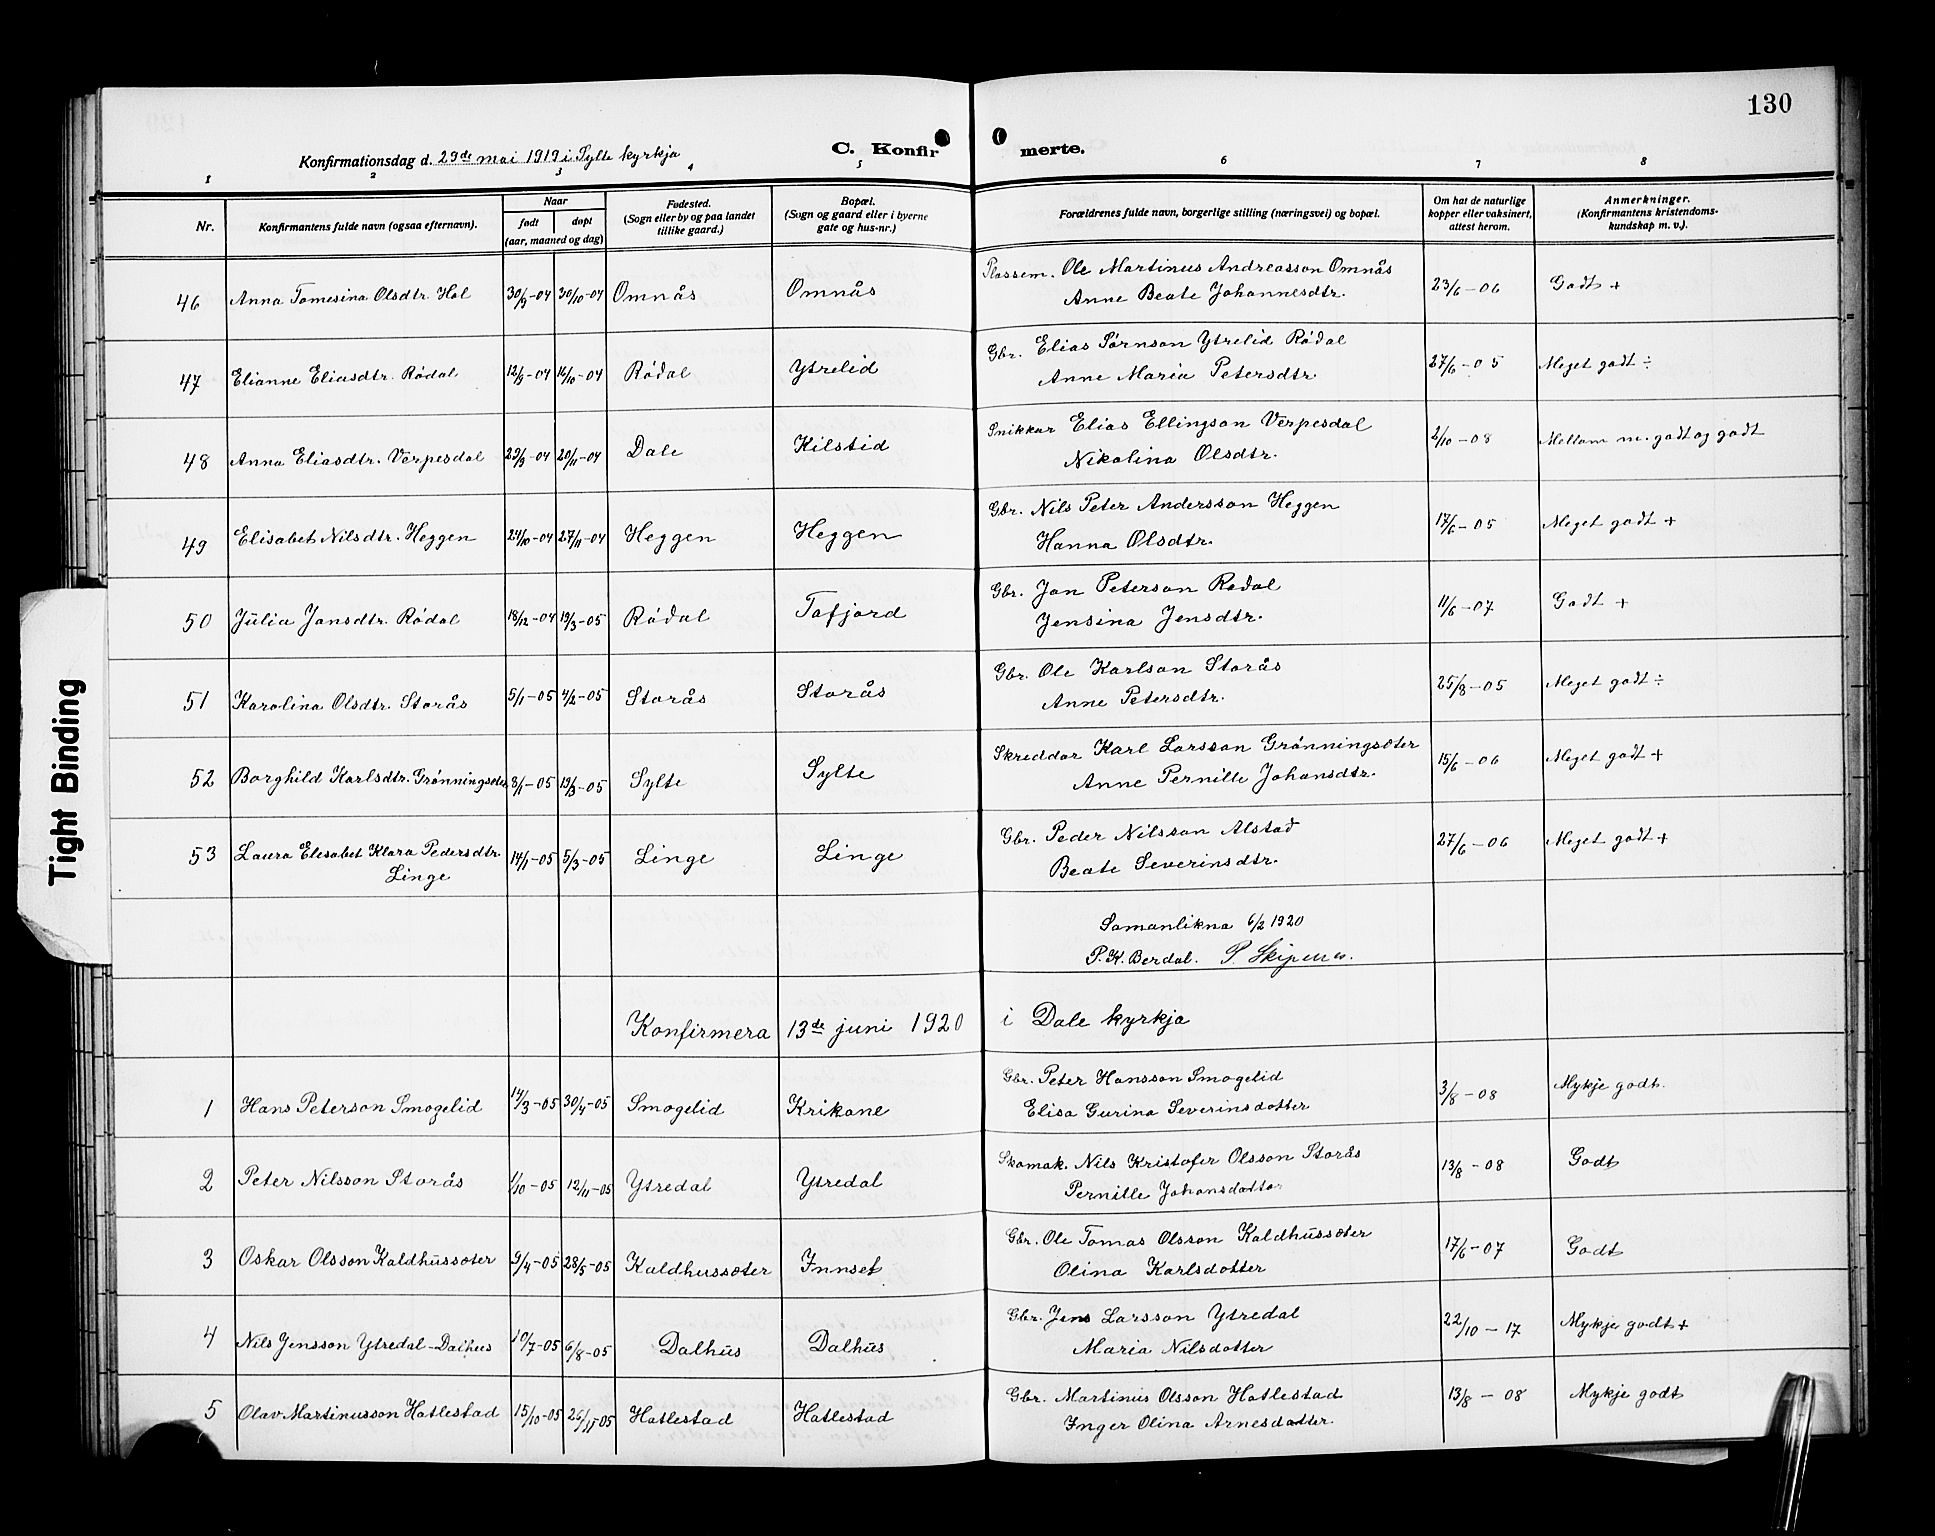 130
Konfirmationsdag d. 29de mai 1919 i Sylte kyrkja
C. Konfir merte.
1 2 3 4 5 6 7 8
Nr. Konfirmantens fulde navn (ogsaa efternavn). Naar født døpt (aar, maaned og dag) Fødested. (Sogn eller by og paa landet tillike gaard.) Bopæl. (Sogn og gaard eller i byerne gate og hus-nr.) Forældrenes fulde navn, borgerlige stilling (næringsvei) og bopæl. Om hat de naturlige kopper eller vaksinert, attest herom. Anmerkninger. (Konfirmantens kristendoms- kundskap m. v.).
46 Anna Tomesina Olsdtr. Hol 30/9-04 30/10-04 Omnås Omnås Plassem. Ole Martinus Andreasson Omnås 23/6-06 Godt +
Anne Beate Johannesdtr.
47 Elianne Eliasdtr. Rødal 12/9-04 16/10-04 Rødal Ytrelid Gbr. Elias Sørnson Ytrelid Rødal 27/6-05 Meget godt ÷
Anne Maria Petersdtr.
48 Anna Eliasdtr. Verpesdal 29/9-04 20/11-04 Dale Kilstid Snikkar Elias Ellingson Verpesdal 2/10-08 Mellom m. godt og godt
Nikolina Olsdtr.
49 Elisabet Nilsdtr. Heggen 24/10-04 27/11-04 Heggen Heggen Gbr. Nils Peter Andersson Heggen 17/6-05 Meget godt +
Hanna Olsdtr.
50 Julia Jonsdtr. Rødal 18/12-04 19/3-05 Rødal Tafjord Gbr. Jon Peterson Rødal 11/6-07 Godt +
Jensina Jensdtr.
51 Karolina Olsdtr. Storås 5/1-05 4/2-05 Storås Storås Gbr. Ole Karlson Storås 25/8-05 Meget godt ÷
Anne Petersdtr.
52 Borghild Karlsdtr. Grønningsæter 8/1-05 19/3-05 Sylte Sylte Skreddar Karl Larsson Grønningsæter 15/6-06 Meget godt +
Anne Pernille Johansdtr.
53 Laura Elesabet Klara Pedersdtr. 14/1-05 5/3-05 Linge Linge Gbr. Peder Nilsson Alstad 27/6-06 Meget godt +
Linge Beate Severinsdtr.
Samanlikna 6/2 1920
P. K. Berdal. P. Skipenes.
Konfirmera 13de juni 1920 i Dale kyrkja
1 Hans Peterson Smogelid 14/3-05 30/4-05 Smogelid Krikane Gbr. Peter Hansson Smogelid 3/8-08 Mykje godt.
Elisa Gurina Severinsdotter
2 Peter Nilsson Storås 1/10-05 12/11-05 Ytredal Ytredal Skomak. Nils Kristofer Olsson Storås 13/8-08 Godt
Pernille Johansdotter
3 Oskar Olsson Kaldhussæter 9/4-05 28/5-05 Kaldhussæter Innset Gbr. Ole Tomas Olsson Kaldhussæter 17/6-07 Godt
Olina Karlsdotter
4 Nils Jensson Ytredal-Dalhus 10/7-05 6/8-05 Dalhus Dalhus Gbr. Jens Larsson Ytredal 22/10-17 Mykje godt +
Maria Nilsdotter
5 Olav Martinusson Hatlestad 15/10-05 26/11-05 Hatlestad Hatlestad Gbr. Martinus Olsson Hatlestad 13/8-08 Mykje godt
Inger Olina Arnesdotter.
Tight Binding